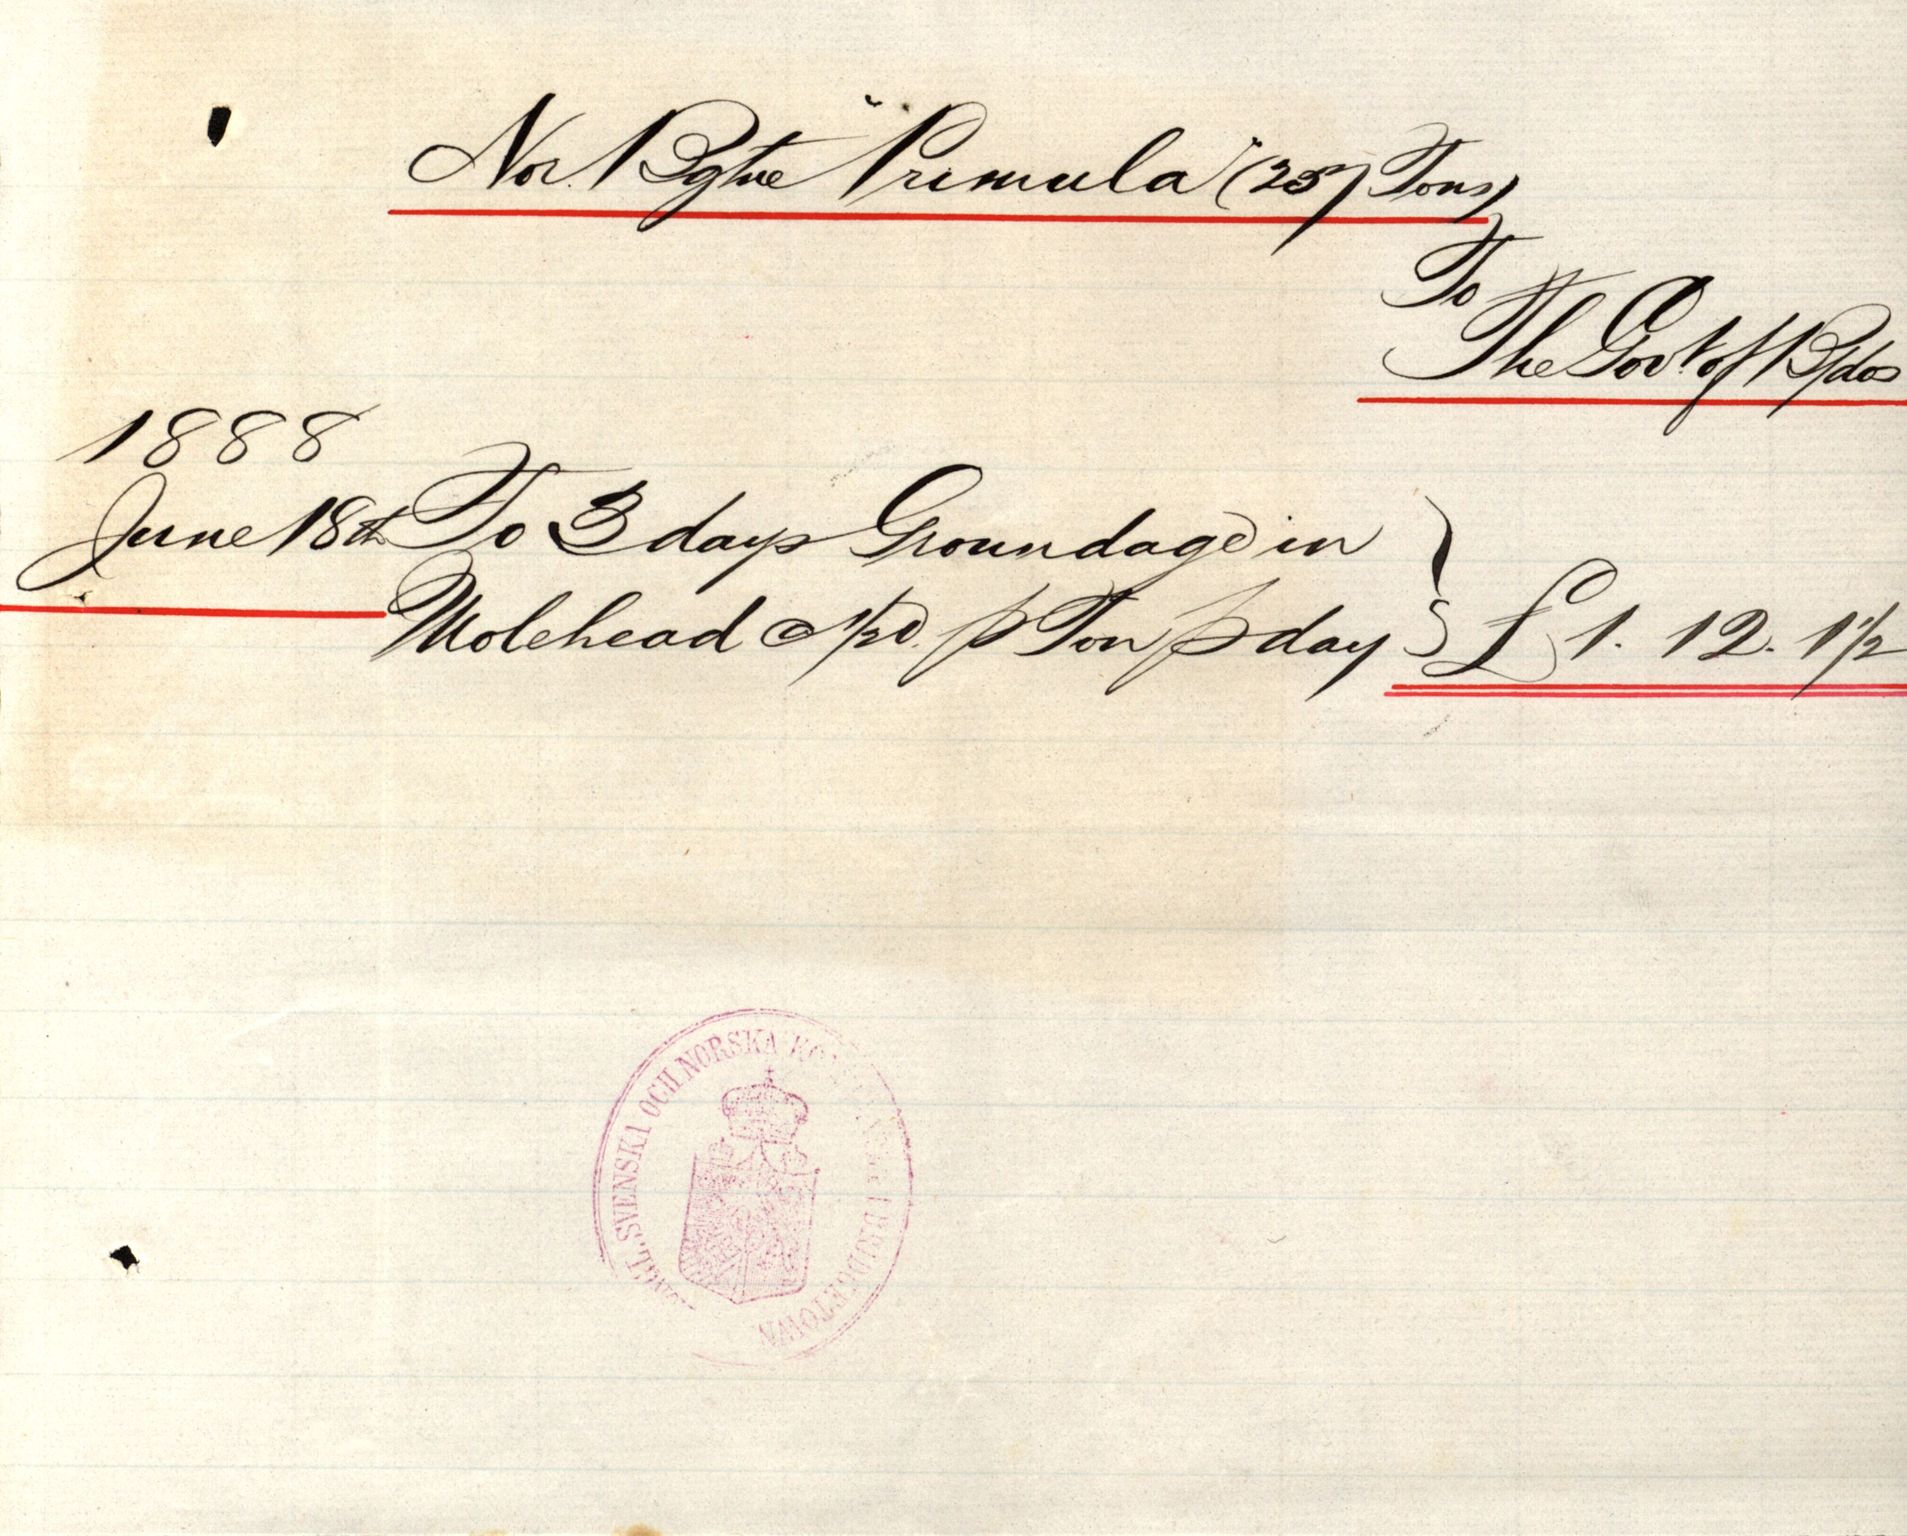 Nor. Bgtne "Primula" (257 Tons)
To
The Govt. of B/dos
1888
June 18th To 3 days Groundage in
Molehead @ 1/2d. p Ton p day } £1. 12. 1 1/2
KONGL. SVENSKA OCH NORSKA I BRIDGETOWN